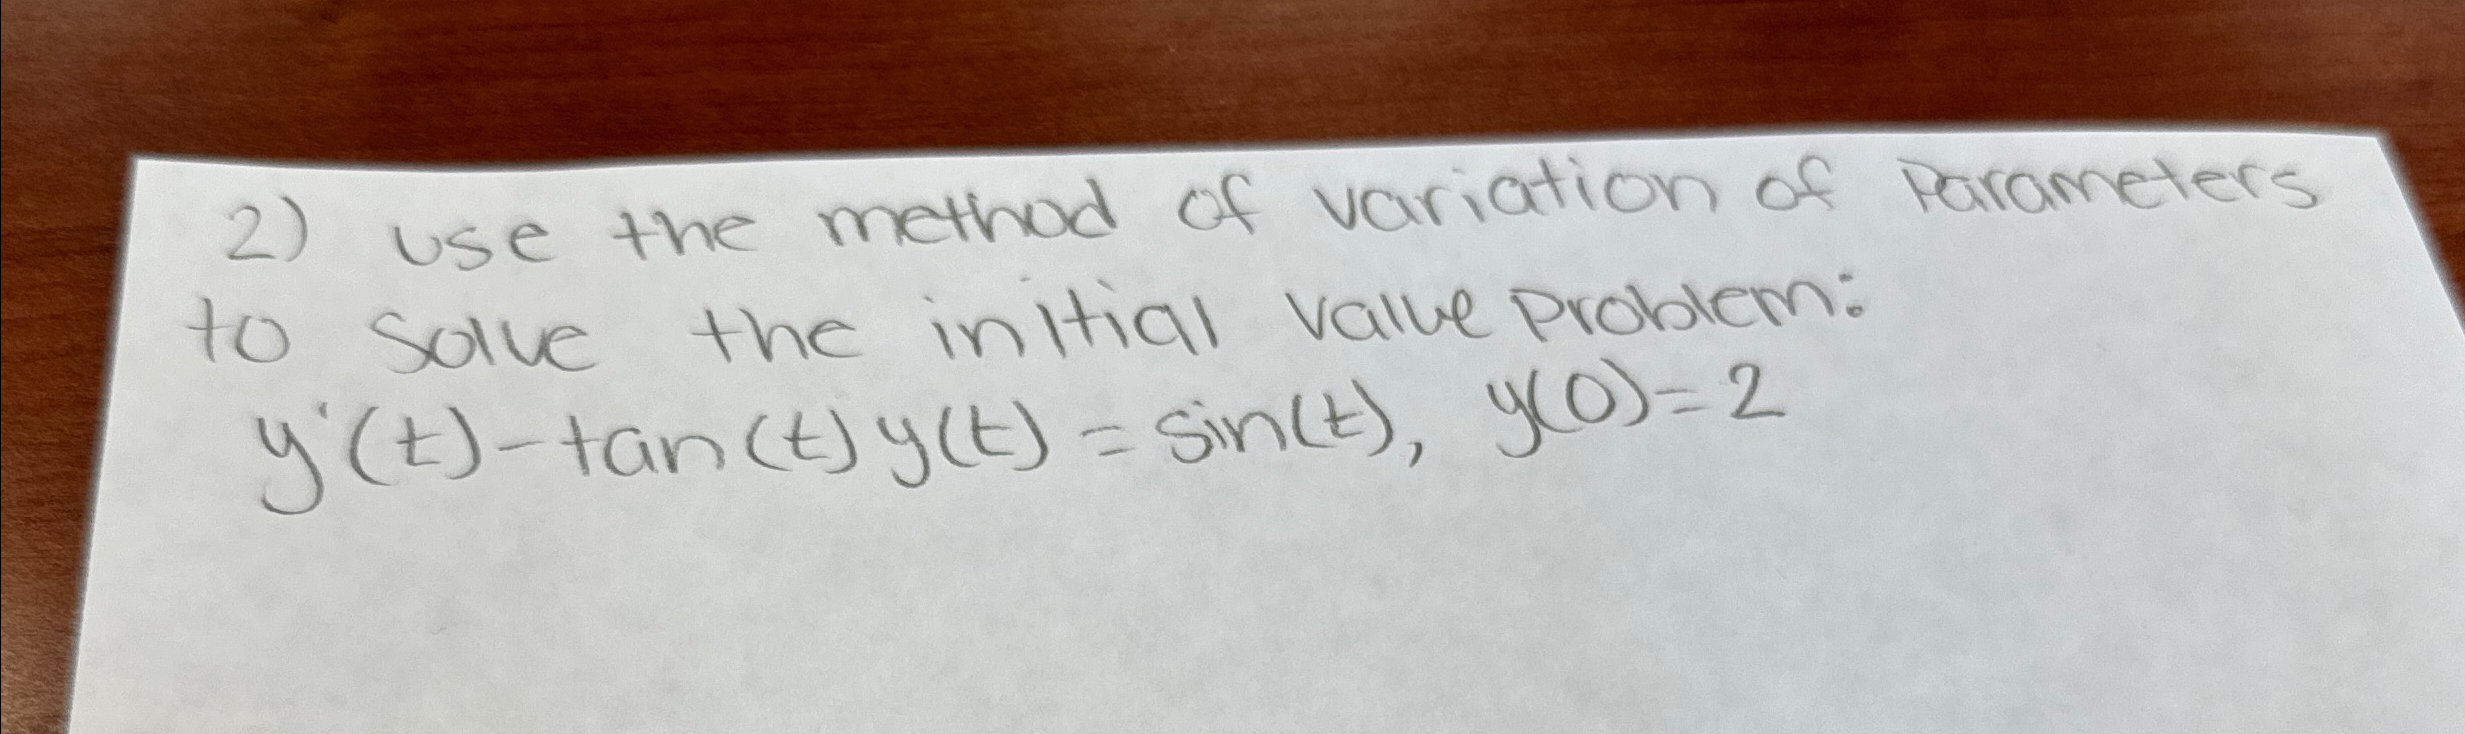 2) use the method of variation of Parameters
to solve the initial value problem:
y'(t)-tan(t)y(t)=sin(t), y(0)=2